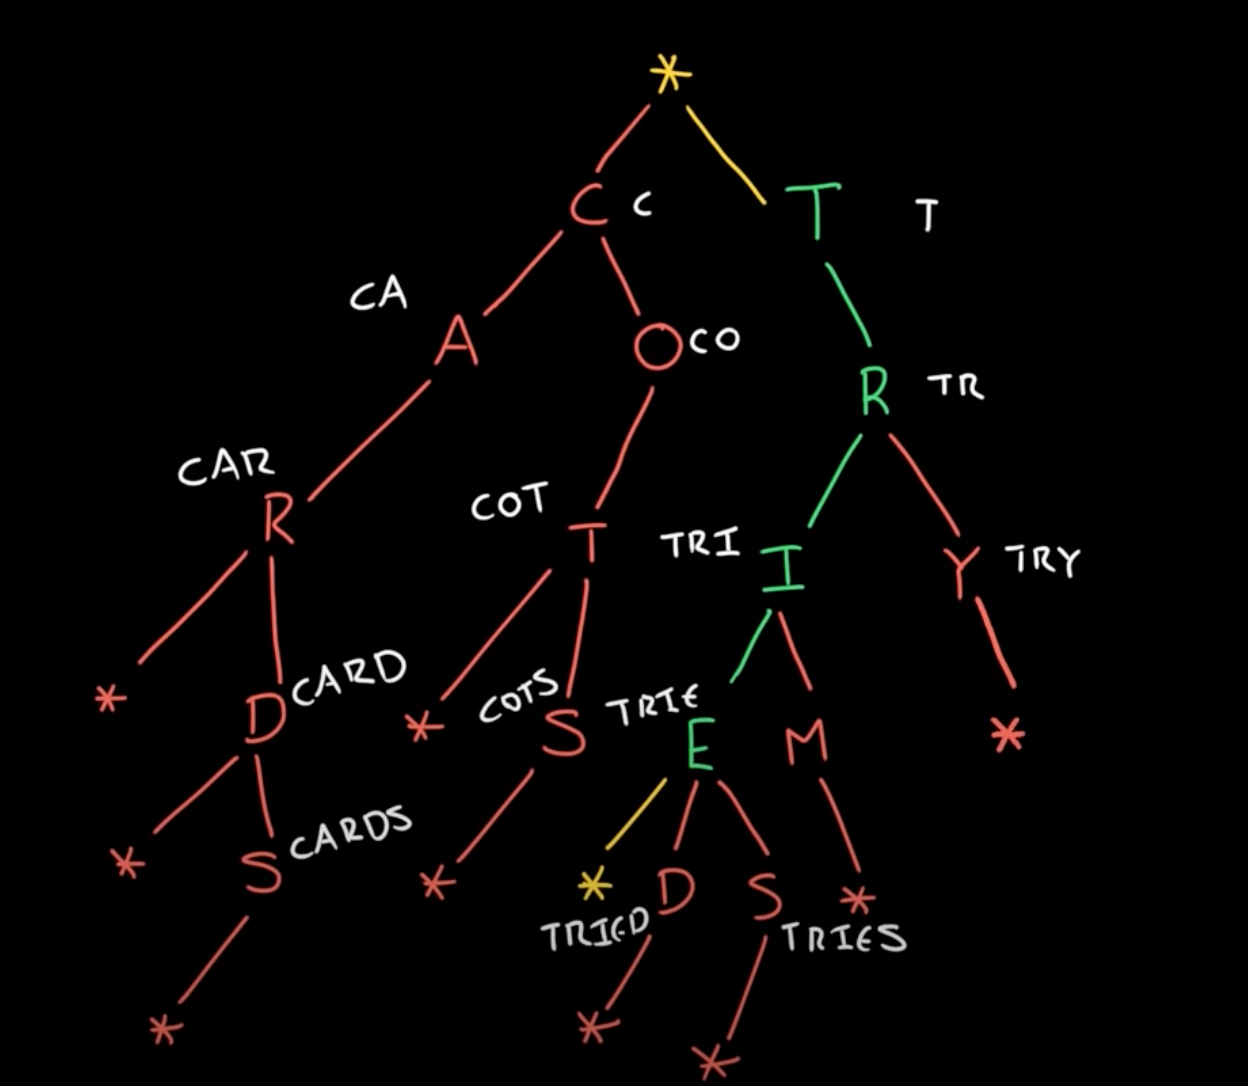 *
C C T T
CA
A O CO
R TR
CAR
R COT T TRI I Y TRY
* D CARD * COTS S TRIE E M *
* S CARDS * * D S *
TRIED TRIES
* * *